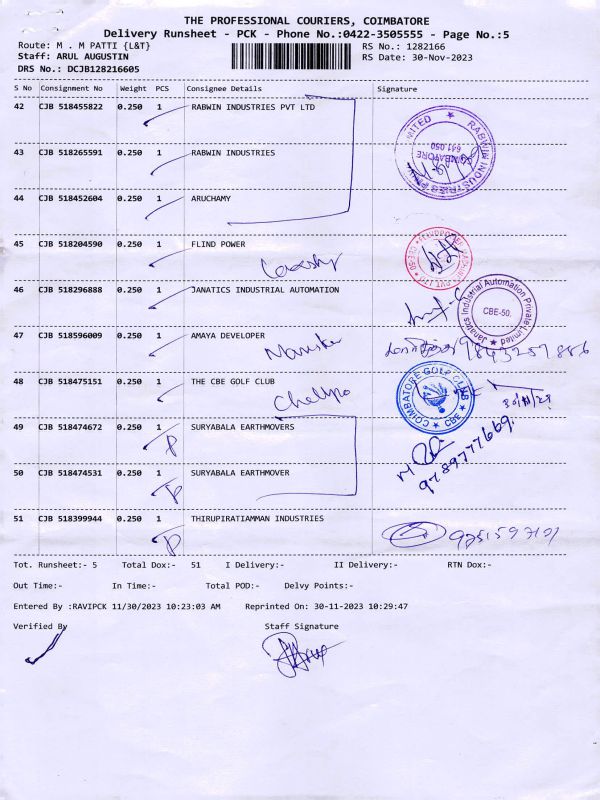 THE PROFESSIONAL COURIERS, COIMBATORE
Delivery Runsheet - PCK - Phone No.:0422-3505555 - Page No.:5
Route: M . M PATTI {L&T}
RS No.: 1282166
Staff: ARUL AUGUSTIN
RS Date: 30-Nov-2023
DRS No.: DCJB128216605
S No Consignment No Weight PCS Consignee Details Signature
42 CJB 518455822 0.250 1 RABWIN INDUSTRIES PVT LTD
43 CJB 518265591 0.250 1 RABWIN INDUSTRIES
RABWIN INDUSTRIES COIMBATORE 641 050
44 CJB 518452604 0.250 1 ARUCHAMY
45 CJB 518204590 0.250 1 FLIND POWER
46 CJB 518296888 0.250 1 JANATICS INDUSTRIAL AUTOMATION
Janatics Industrial Automation Private Limited CBE-50.
47 CJB 518596009 0.250 1 AMAYA DEVELOPER
9843257886
48 CJB 518475151 0.250 1 THE CBE GOLF CLUB
COIMBATORE GOLF CLUB CBE
30/11/23
49 CJB 518474672 0.250 1 SURYABALA EARTHMOVERS
9789777669.
50 CJB 518474531 0.250 1 SURYABALA EARTHMOVER
51 CJB 518399944 0.250 1 THIRUPIRATIAMMAN INDUSTRIES
Tot. Runsheet:- 5 Total Dox:- 51 I Delivery:- II Delivery:- RTN Dox:-
Out Time:- In Time:- Total POD:- Delvy Points:-
Entered By :RAVIPCK 11/30/2023 10:23:03 AM Reprinted On: 30-11-2023 10:29:47
Verified By Staff Signature